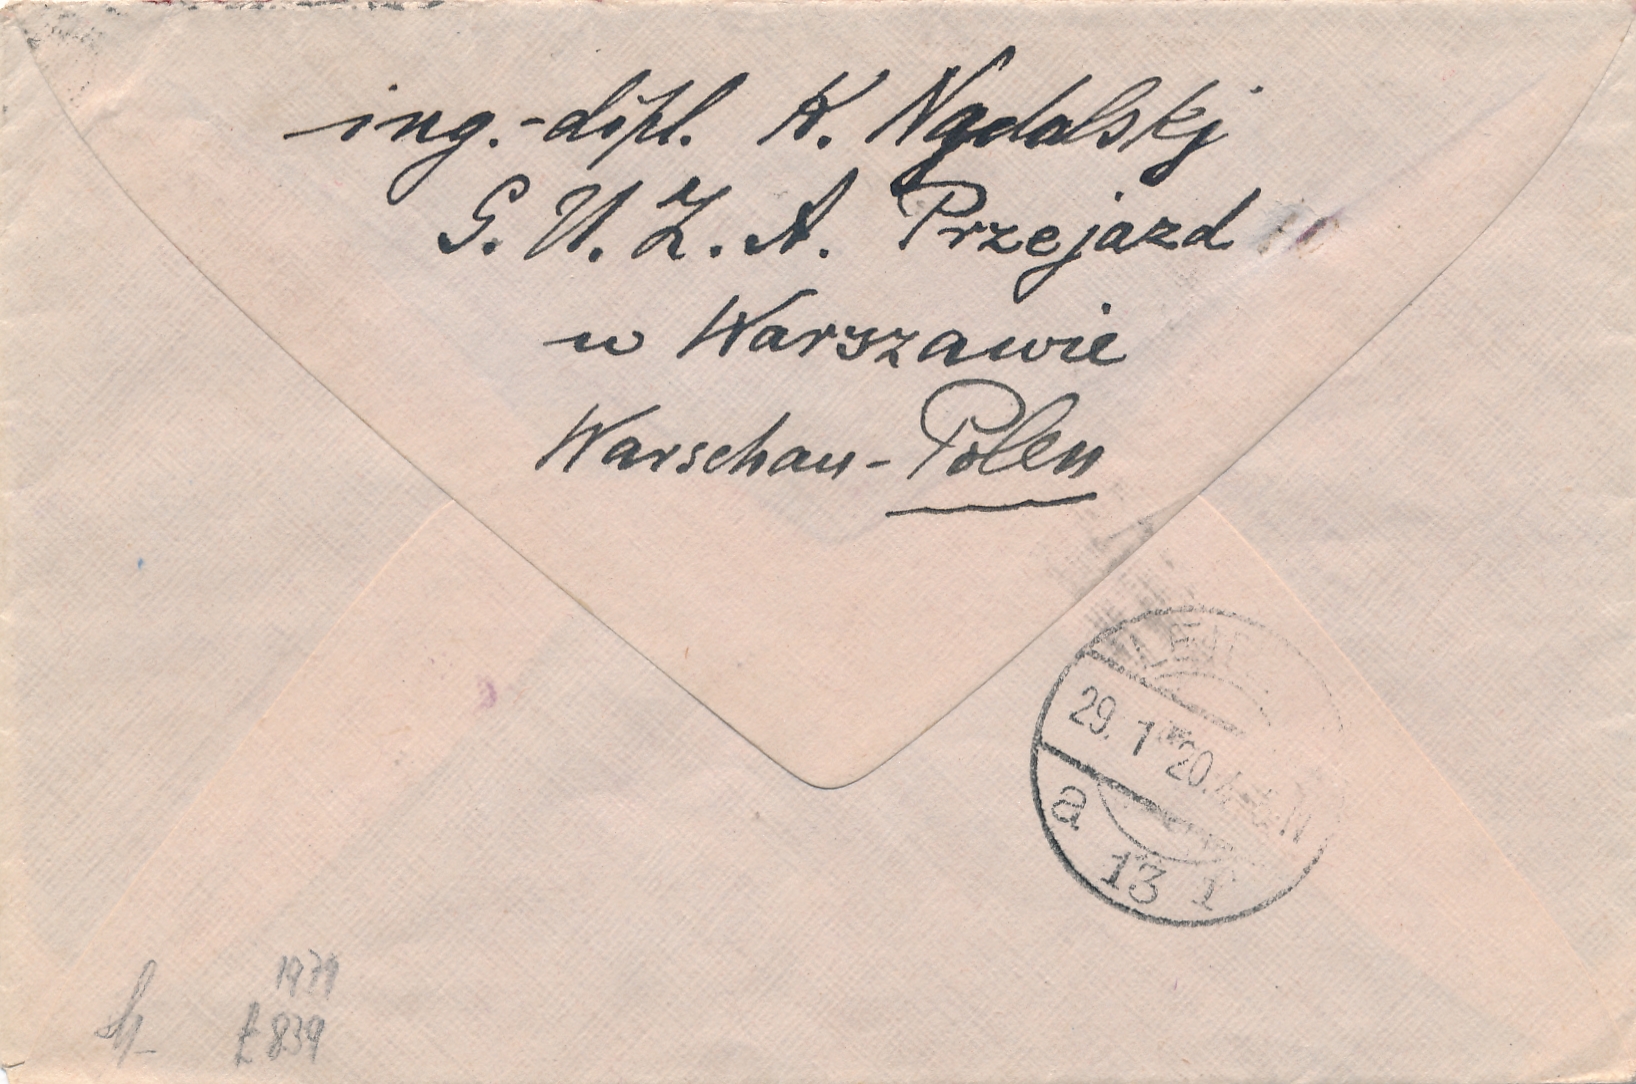 ing.-dipl. K. Nądolskj
G. U. Z. A. Przejazd
w Warszawie
Warschau-Polen
29. 1
20.
a
13 1
1979
£ 839